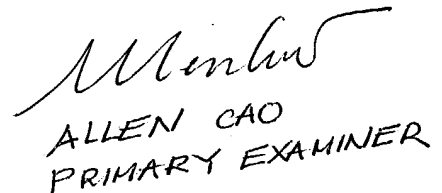 ALLEN CAO
PRIMARY EXAMINER